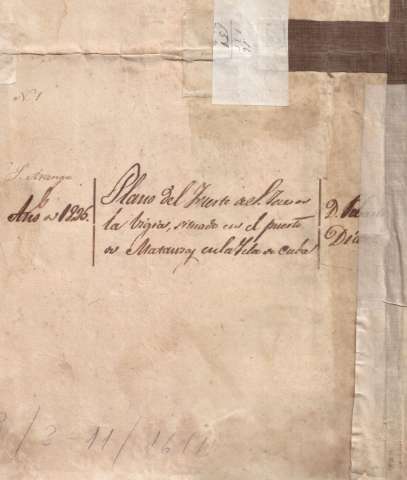 N. 1
S. Arango
Año de 1826.
Plano del Fuerte de S. José de
la Vigia, situado en el puerto
de Matanzas en la Isla de Cuba
D.
Dia
2-11/16